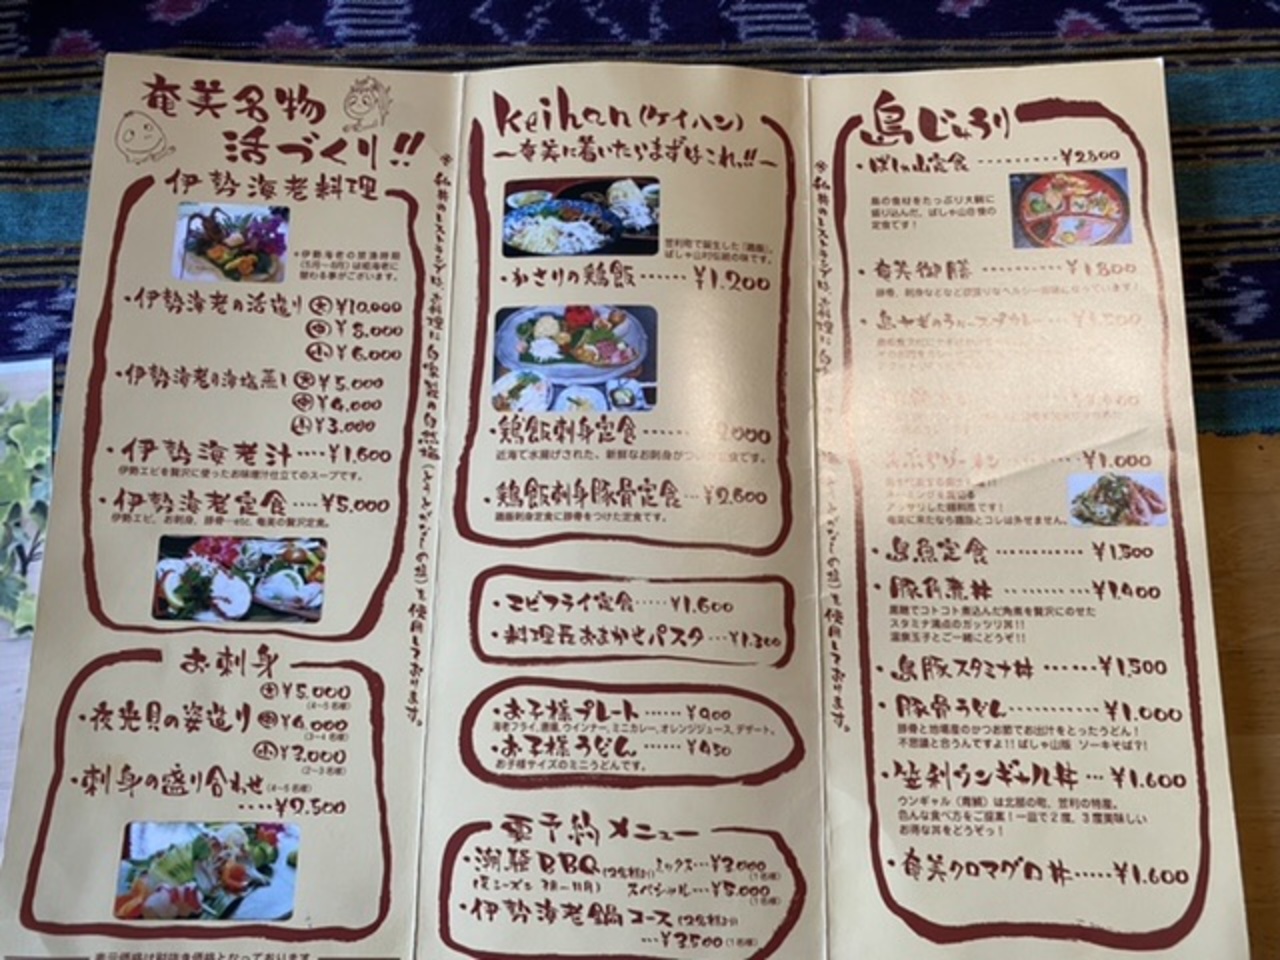 奄美名物
活づくり!!
伊勢海老料理
*伊勢海老の禁漁時期
(5月〜8月)は
・伊勢海老の活造り 大 ¥10,000
中 ¥8,000
小 ¥6,000
・伊勢海老の海塩蒸し 大 ¥5,000
中 ¥4,000
小 ¥3,000
・伊勢海老汁····¥1,600
伊勢エビを贅沢に使ったお味噌汁仕立てのスープです。
・伊勢海老定食····¥5,000
伊勢エビ、お刺身、豚骨…etc. 奄美の贅沢定食。
お刺身
大 ¥5,000
(4〜5名様)
・夜光貝の姿造り 中 ¥4,000
(3〜4名様)
小 ¥3,000
(2〜3名様)
・刺身の盛り合わせ(4〜5名様)
····¥2,500
表示価格は税抜き価格となっております
Keihan(ケイハン)
〜奄美に着いたらまずはこれ!!〜
笠利町で誕生した「鶏飯」。
ばしゃ山村伝統の味です。
・かさりの鶏飯······¥1,200
・鶏飯刺身定食······2,000
近海で水揚げされた、新鮮なお刺身がつ 定食です。
・鶏飯刺身豚骨定食···¥2,600
鶏飯刺身定食に豚骨をつけた定食です。
・エビフライ定食·····¥1,600
・料理長おまかせパスタ···¥1,300
・お子様プレート······¥900
海老フライ、唐揚、ウインナー、ミニカレー、オレンジジュース、デザート。
・お子様うどん······¥450
お子様サイズのミニうどんです。
要予約メニュー
・潮騒BBQ(2名様より) ミックス···¥3,000
(1名様)
スペシャル···¥5,000
(1名様)
・伊勢海老鍋コース(2名様より)
···¥3,500(1名様)
島じゅうり
・ばしゃ山定食·········¥2,800
島の食材をたっぷり大鉢に
盛り込んだ、ばしゃ山自慢の
定食です!
・奄美御膳··········¥1,800
¥1,000
奄美に来たなら鶏飯とコレは外せません。
・島魚定食············¥1,500
・豚角煮丼··········¥1,400
黒糖でコトコト煮込んだ角煮を贅沢にのせた
スタミナ満点のガッツリ丼!!
温泉玉子とご一緒にどうぞ!!
・島豚スタミナ丼······¥1,500
・豚骨うどん··········¥1,000
豚骨と地場産のかつお節でお出汁をとったうどん!
不思議と合うんですよ!! ばしゃ山版 ソーキそば?!
・笠利ウンギャル丼···¥1,600
ウンギャル(青鯛)は北部の町、笠利の特産。
色んな食べ方をご提案!一皿で2度、3度美味しい
お得な丼をどうぞっ!
・奄美クロマグロ丼·····¥1,600